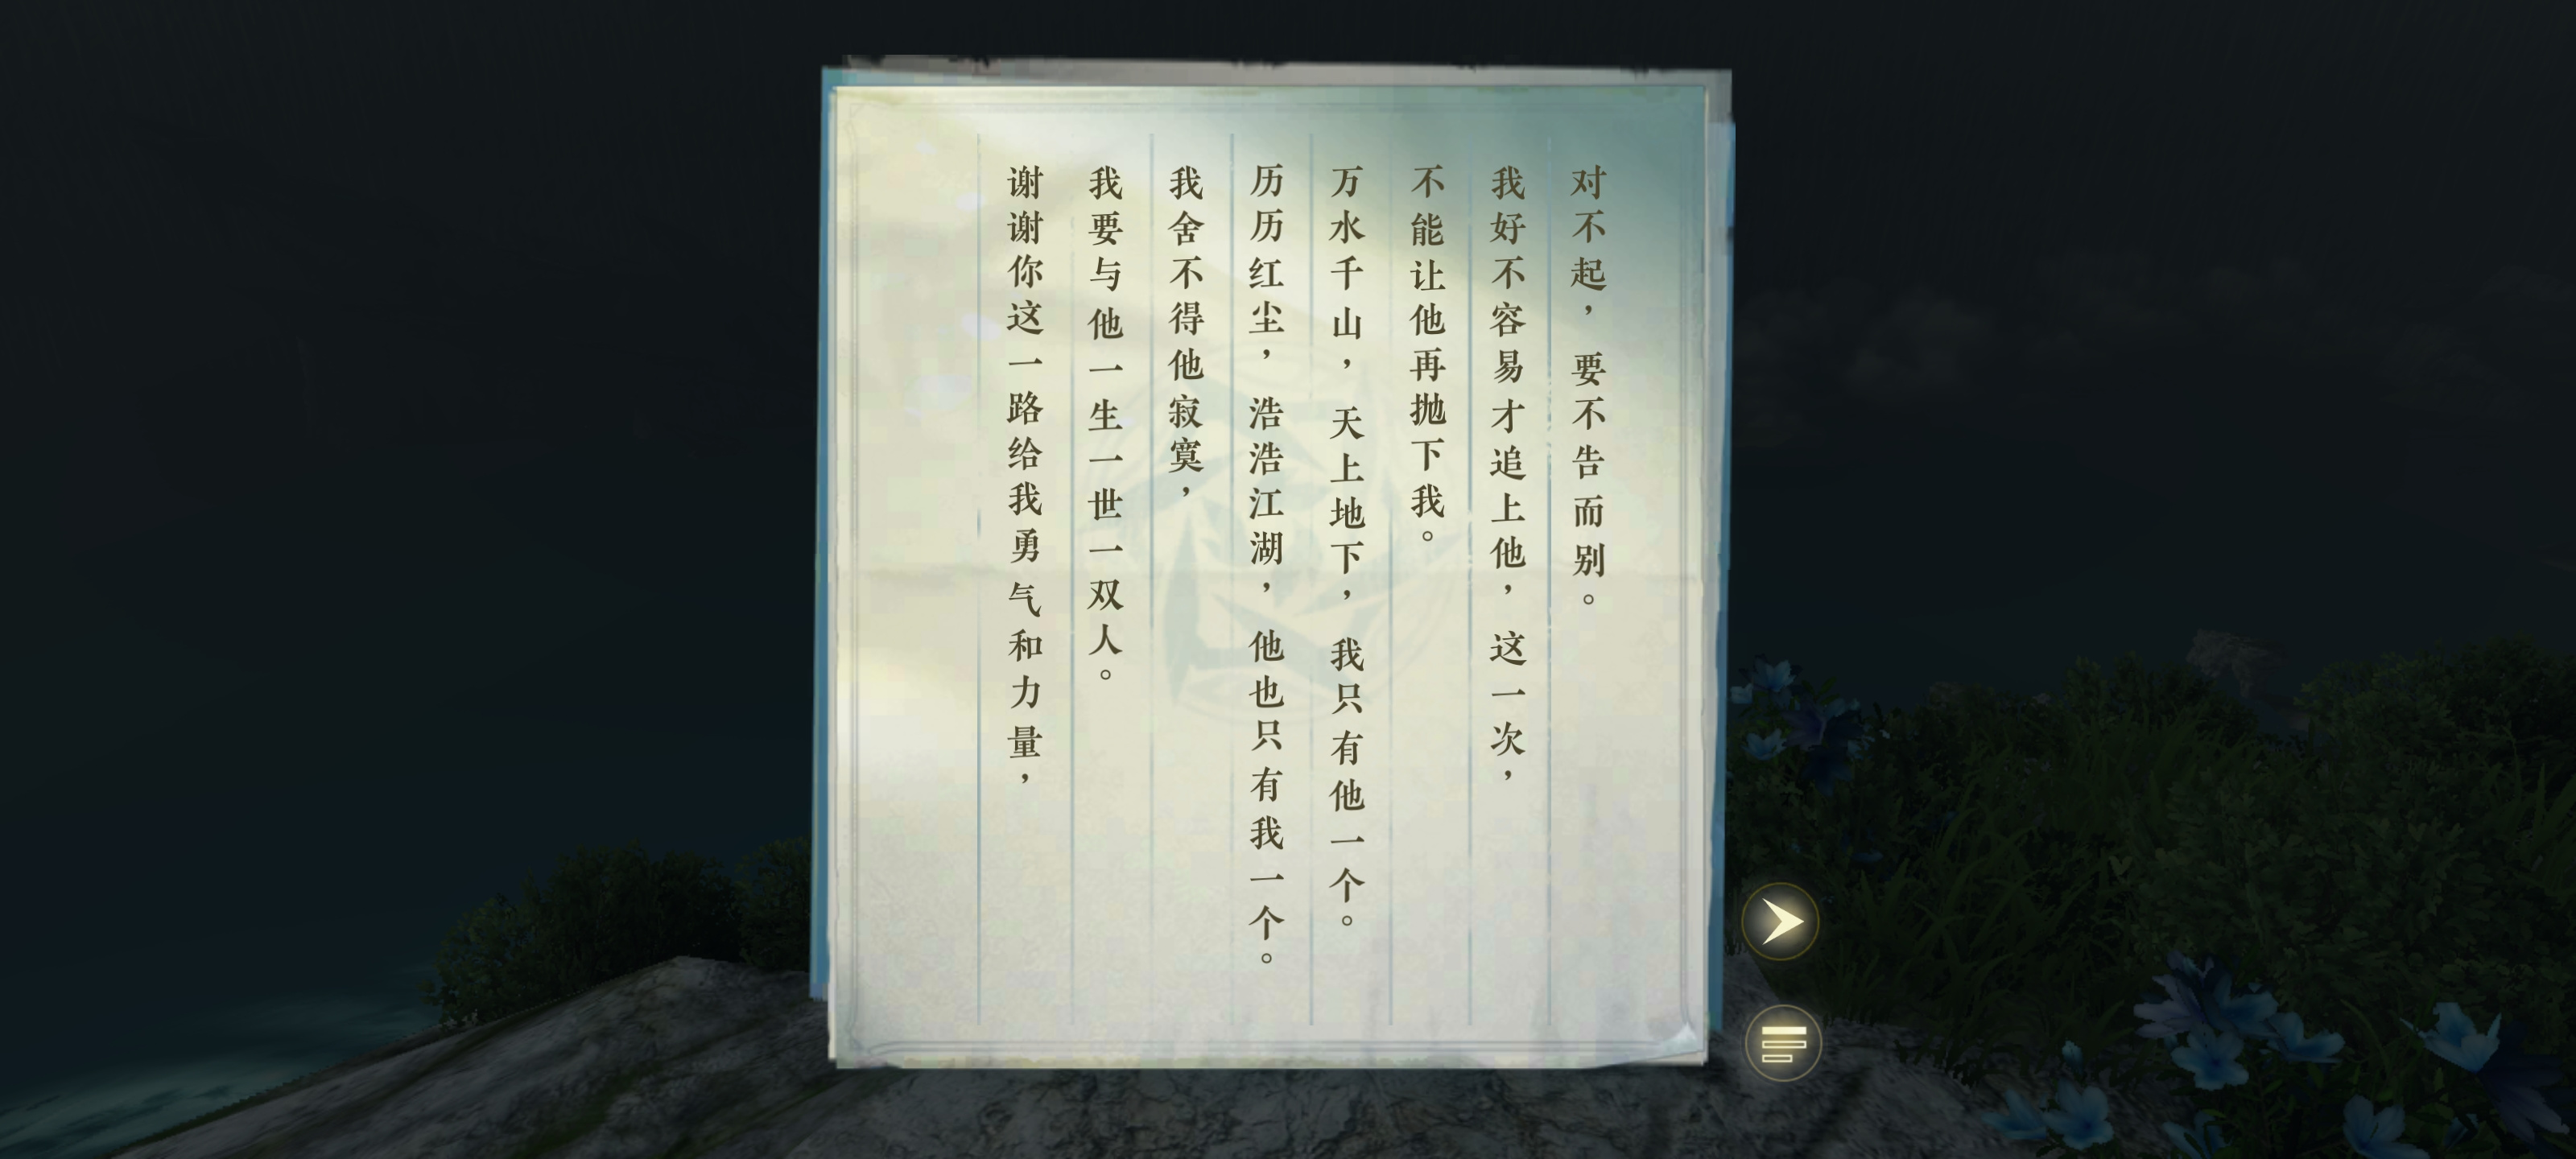 对不起，要不告而别。
我好不容易才追上他，这一次，
不能让他再抛下我。
万水千山，天上地下，我只有他一个。
历历红尘，浩浩江湖，他也只有我一个。
我舍不得他寂寞，
我要与他一生一世一双人。
谢谢你这一路给我勇气和力量，